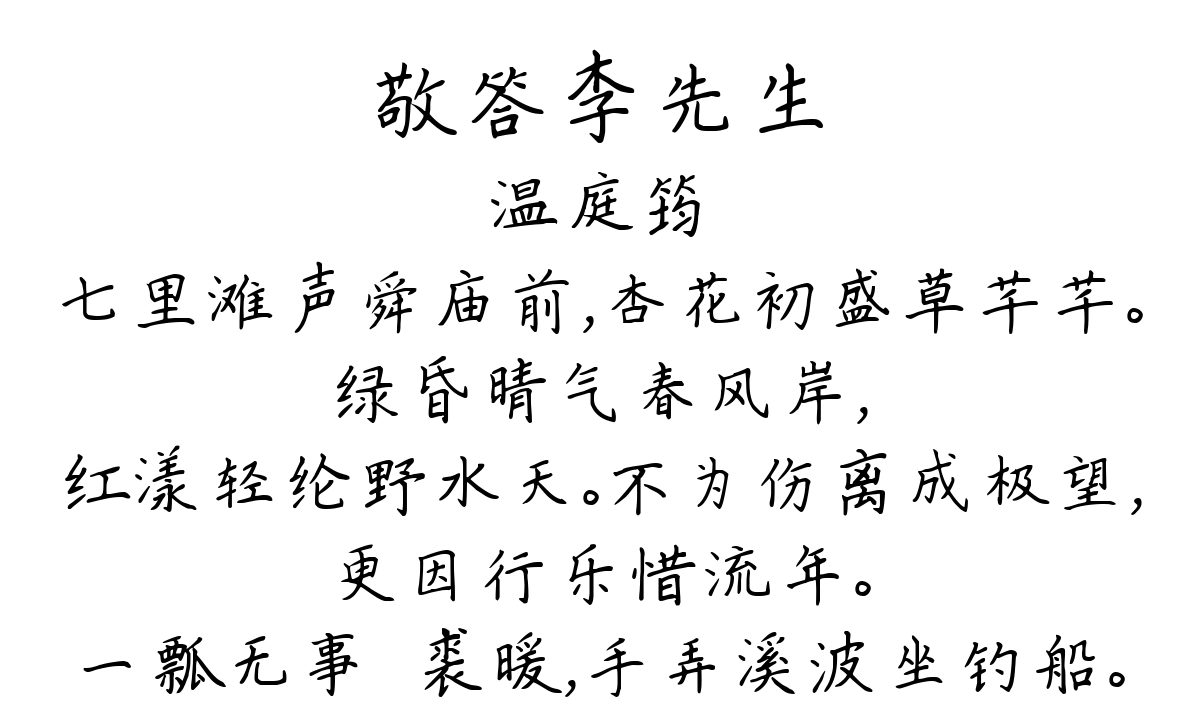 敬答李先生
温庭筠
七里滩声舜庙前,杏花初盛草芊芊。
绿昏晴气春风岸,
红漾轻纶野水天。不为伤离成极望,
更因行乐惜流年。
一瓢无事 裘暖,手弄溪波坐钓船。